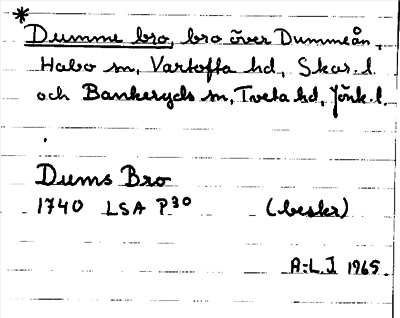 *
Dumme bro, bro över Dummeån,
Habo sn, Vartofta hd, Skar. l.
och Bankeryds sn, Tveta hd, Jönk. l.
Dums Bro
1740 LSA P30 (beskr)
A-L. J. 1965.